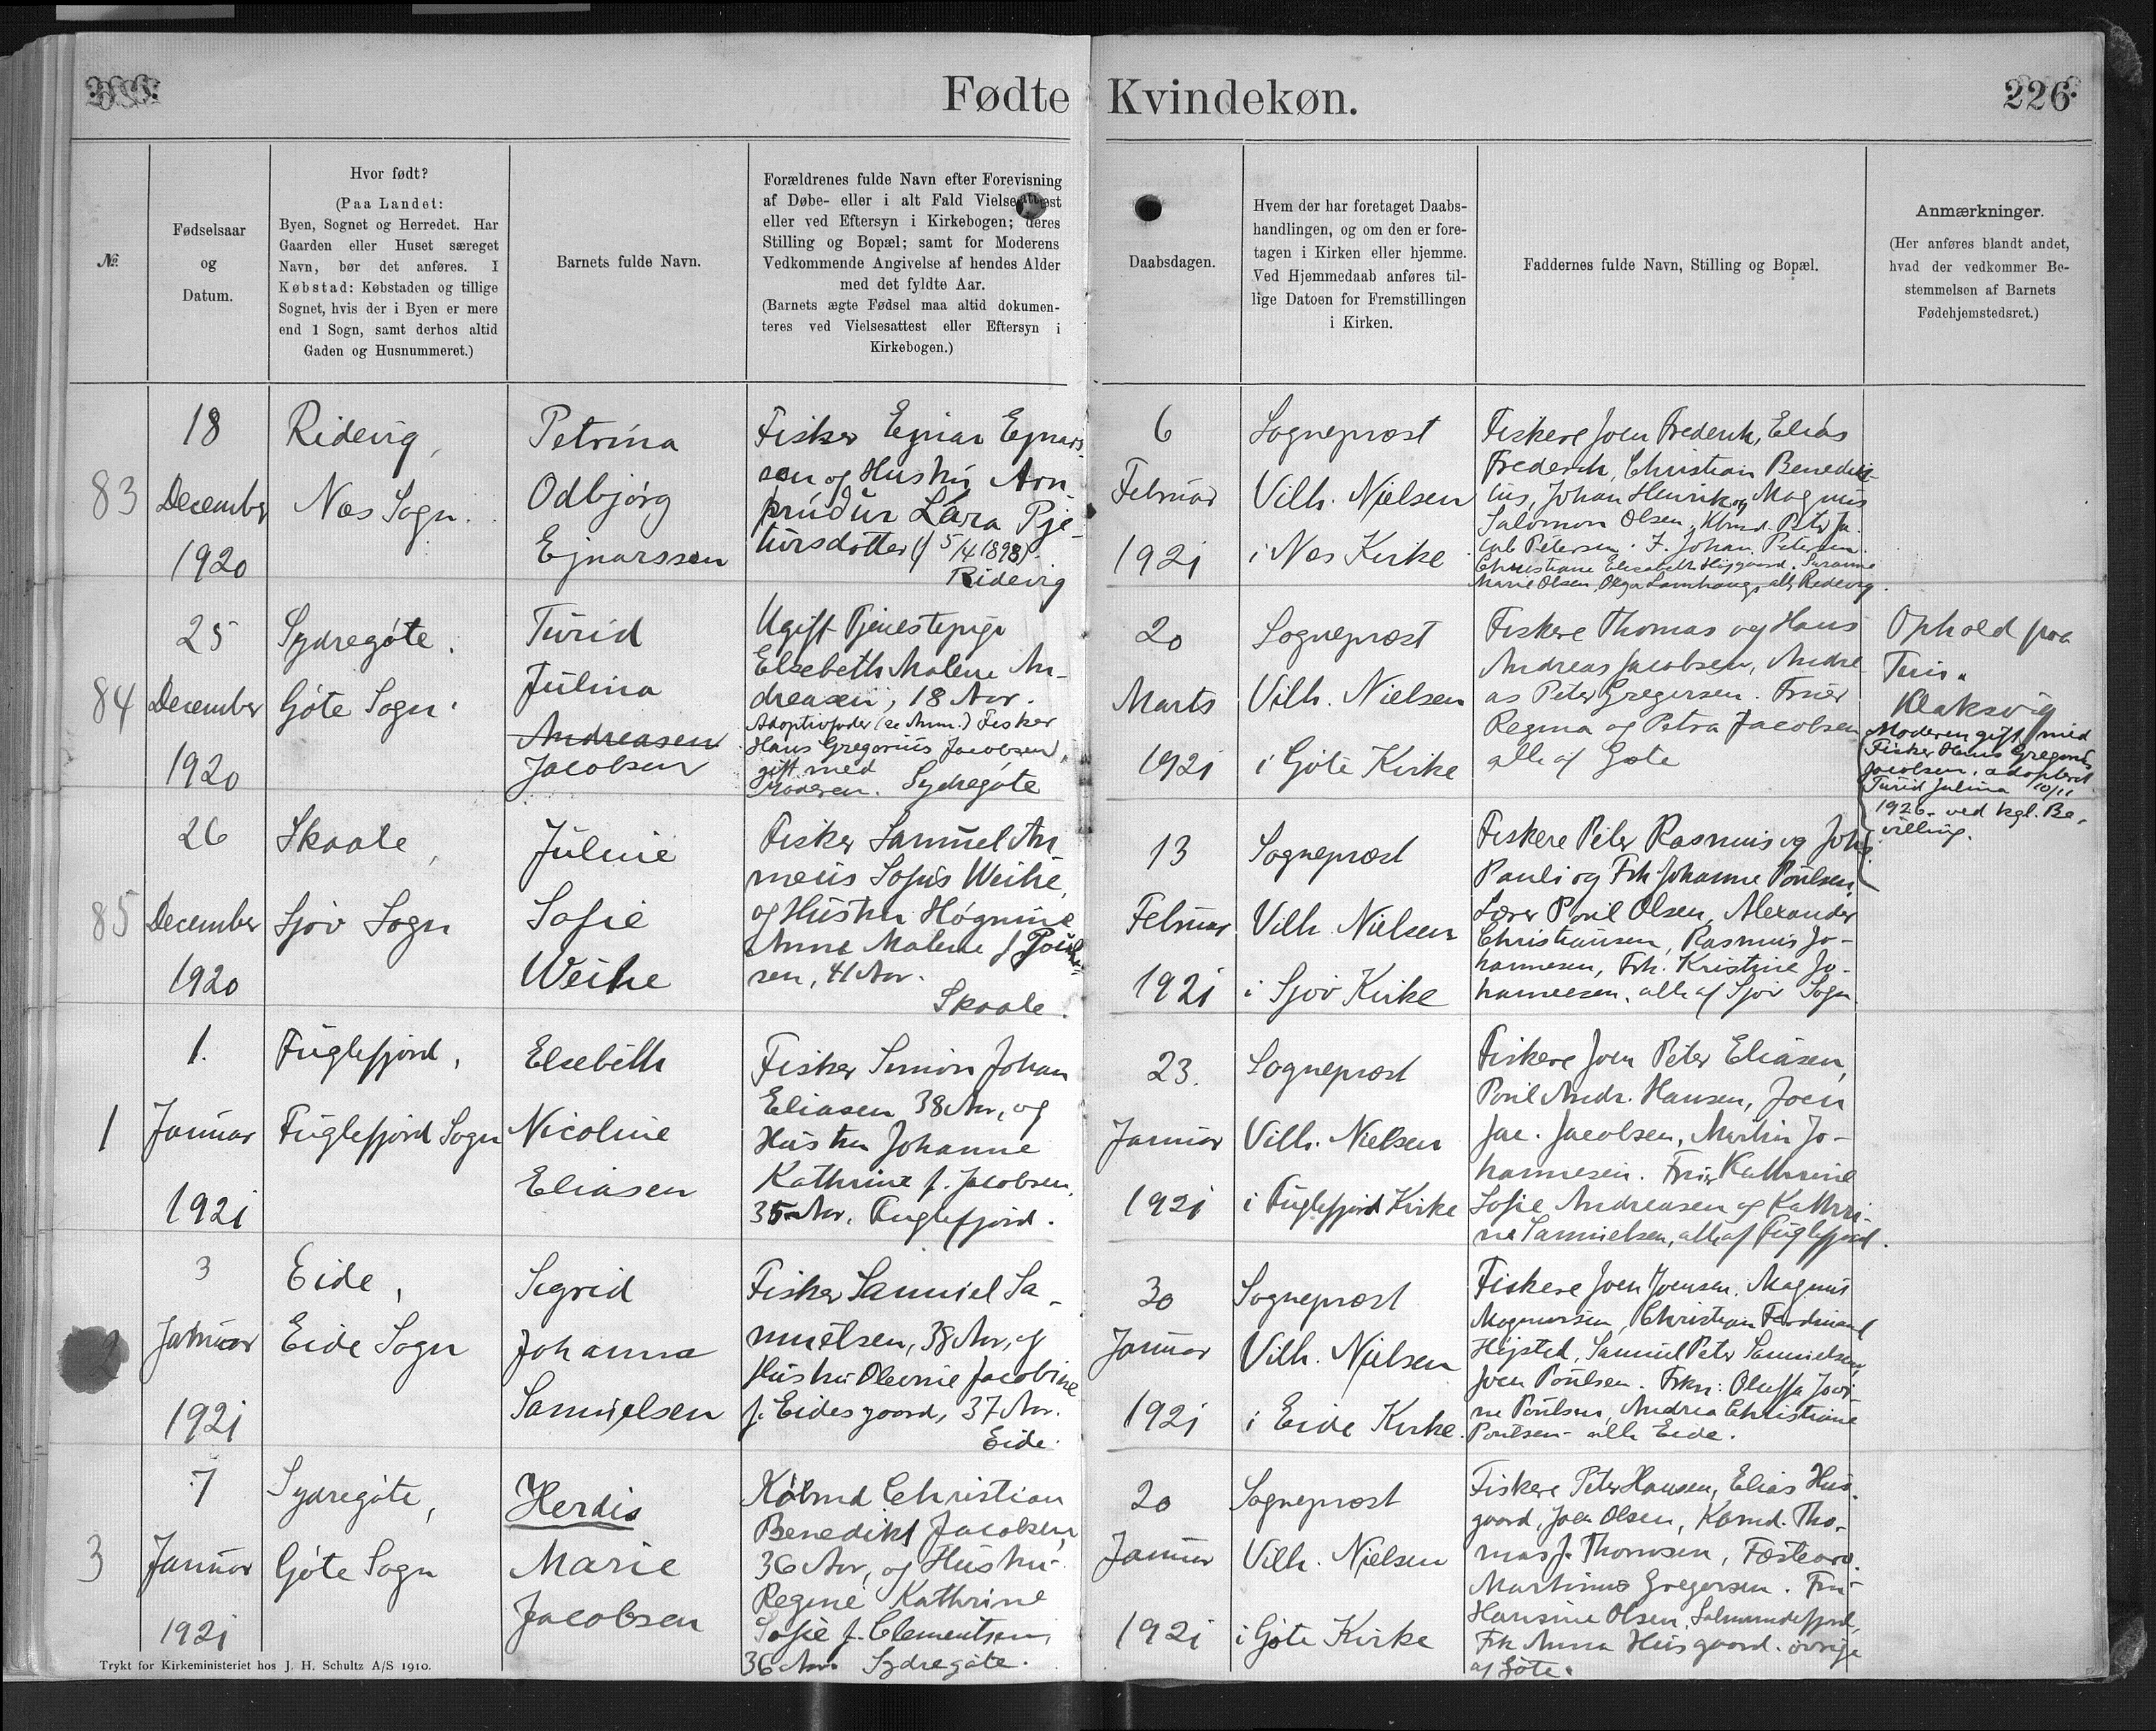 Fødte Kvindekøn.
226.
№
Fødselsaar
og
Datum.
Hvor født?
(Paa Landet:
Byen, Sognet og Herredet. Har
Gaarden eller Huset særeget
Navn, bør det anføres. I
Købstad: Købstaden og tillige
Sognet, hvis der i Byen er mere
end 1 Sogn, samt derhos altid
Gaden og Husnummeret.)
Barnets fulde Navn.
Forældrenes fulde Navn efter Forevisning
af Døbe- eller i alt Fald Vielsesattest
eller ved Eftersyn i Kirkebogen; deres
Stilling og Bopæl; samt for Moderens
Vedkommende Angivelse af hendes Alder
med det fyldte Aar.
(Barnets ægte Fødsel maa altid dokumen-
teres ved Vielsesattest eller Eftersyn i
Kirkebogen.)
Daabsdagen.
Hvem der har foretaget Daabs-
handlingen, og om den er fore-
tagen i Kirken eller hjemme.
Ved Hjemmedaab anføres til-
lige Datoen for Fremstillingen
i Kirken.
Faddernes fulde Navn, Stilling og Bopæl.
Anmærkninger.
(Her anføres blandt andet,
hvad der vedkommer Be-
stemmelsen af Barnets
Fødehjemstedsret.)
83
18
December
1920
Ridevig,
Nes Sogn.
Petrina
Odbjørg
Ejnarssen
Fisker Ejnar Ejnars-
sen og Hustru Arn-
prúdur Lára Pje-
tursdotter (f 5/4 1898).
Ridevig
6
Februar
1921
Sognepræst
Vilh. Nielsen
i Nes Kirke
Fiskere Joen Frederik, Elias
Frederik, Christian Benedik-
tus, Johan Henrik og Magnus
Salomon Olsen, Kbmd. Peter Ja-
cob Petersen. F. Johan Petersen.
Christiane Elisabeth Højgaard. Susanne
Marie Olsen, Olga Lamhauge, alle Ridevig.
84
25
December
1920
Sydregøte.
Gøte Sogn.
Turid
Julina
Andreasen
Jacobsen
Ugift Tjenestepige
Elsebeth Malene An-
dreasen, 18 Aar.
Adoptivfader (se Anm.) Fisker
Hans Gregorius Jacobsen,
gift med
Moderen. Sydregøte
20
Marts
1921
Sognepræst
Vilh. Nielsen
i Gøte Kirke
Fiskere Thomas og Hans
Andreas Jacobsen, Andre-
as Peter Gregersen. Fruer
Regina og Petra Jacobsen
alle af Gøte
Ophold paa
Klaksvig
Moderen gift med
Fisker Hans Gregorius
Jacobsen, adopteret
Turid Julina 10/11
1926 ved kgl. Be-
villing.
85
26
December
1920
Skaale,
Sjov Sogn
Juline
Sofie
Weihe
Fisker Samuel An-
næus Sofus Weihe,
og Hustru Høgnine
Anne Malene f Poul-
sen, 41 Aar.
Skaale.
13
Februar
1921
Sognepræst
Vilh. Nielsen
i Sjov Kirke
Fiskere Peter Rasmus og Johs.
Pauli og Frk Johanne Poulsen,
Lærer Poul Olsen, Alexander
Christiansen, Rasmus Jo-
hannesen, Frk. Kristine Jo-
hannesen, alle af Sjov Sogn.
1
1.
Januar
1921
Fuglefjord,
Fuglefjord Sogn
Elsebeth
Nicoline
Eliasen
Fisker Simon Johan
Eliasen 38 Aar, og
Hustru Johanne
Kathrine f. Jacobsen,
35 Aar. Fuglefjord.
23.
Januar
1921
Sognepræst
Vilh. Nielsen
i Fuglefjord Kirke
Fiskere Joen Peter Eliasen,
Poul Andr. Hansen, Joen
Jac. Jacobsen, Martin Jo-
hannesen. Fruer Kathrine
Sofie Andreasen og Kathri-
ne Samuelsen, alle af Fuglefjord.
2
3
Januar
1921
Eide,
Eide Sogn
Sigrid
Johanna
Samuelsen
Fisker Samuel Sa-
muelsen, 38 Aar, og
Hustru Olevine Jacobine
f. Eidesgaard, 37 Aar.
Eide.
30
Januar
1921
Sognepræst
Vilh. Nielsen
i Eide Kirke.
Fiskere Joen Joensen, Magnus
Magnussen, Christian Ferdinand
Højsted, Samuel Peter Samuelsen,
Joen Poulsen. Frkn: Oluffa Jovi-
ne Poulsen, Andrea Christiane
Poulsen - alle Eide.
3
7
Januar
1921
Sydregøte,
Gøte Sogn
Herdis
Marie
Jacobsen
Købmd Christian
Benedikt Jacobsen,
36 Aar, og Hustru
Regine Kathrine
Sofie f. Clementsen,
36 Aar. Sydregøte.
20
Januar
1921
Sognepræst
Vilh. Nielsen
i Gøte Kirke
Fiskere Peter Hansen, Elias Hus-
gaard, Joen Olsen, Kbmd. Tho-
mas f. Thomsen, Fæsteard.
Martinus Gregersen. Fru
Hansine Olsen, Salmundefjord,
Frk Anna Husgaard. øvrige
af Gøte.
Trykt for Kirkeministeriet hos J. H. Schultz A/S 1910.